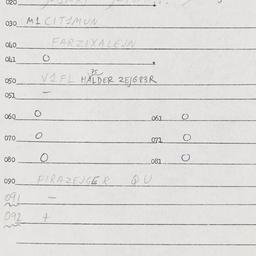 020
030 M1 CIT1MUN
040 FARZIXALEJN
041 0
050 V1FL HALDER ZEJG83R
051 –
060 0 061 0
070 0 071 0
080 0 081 0
090 FIRAZEJGER QU
091 –
092 +